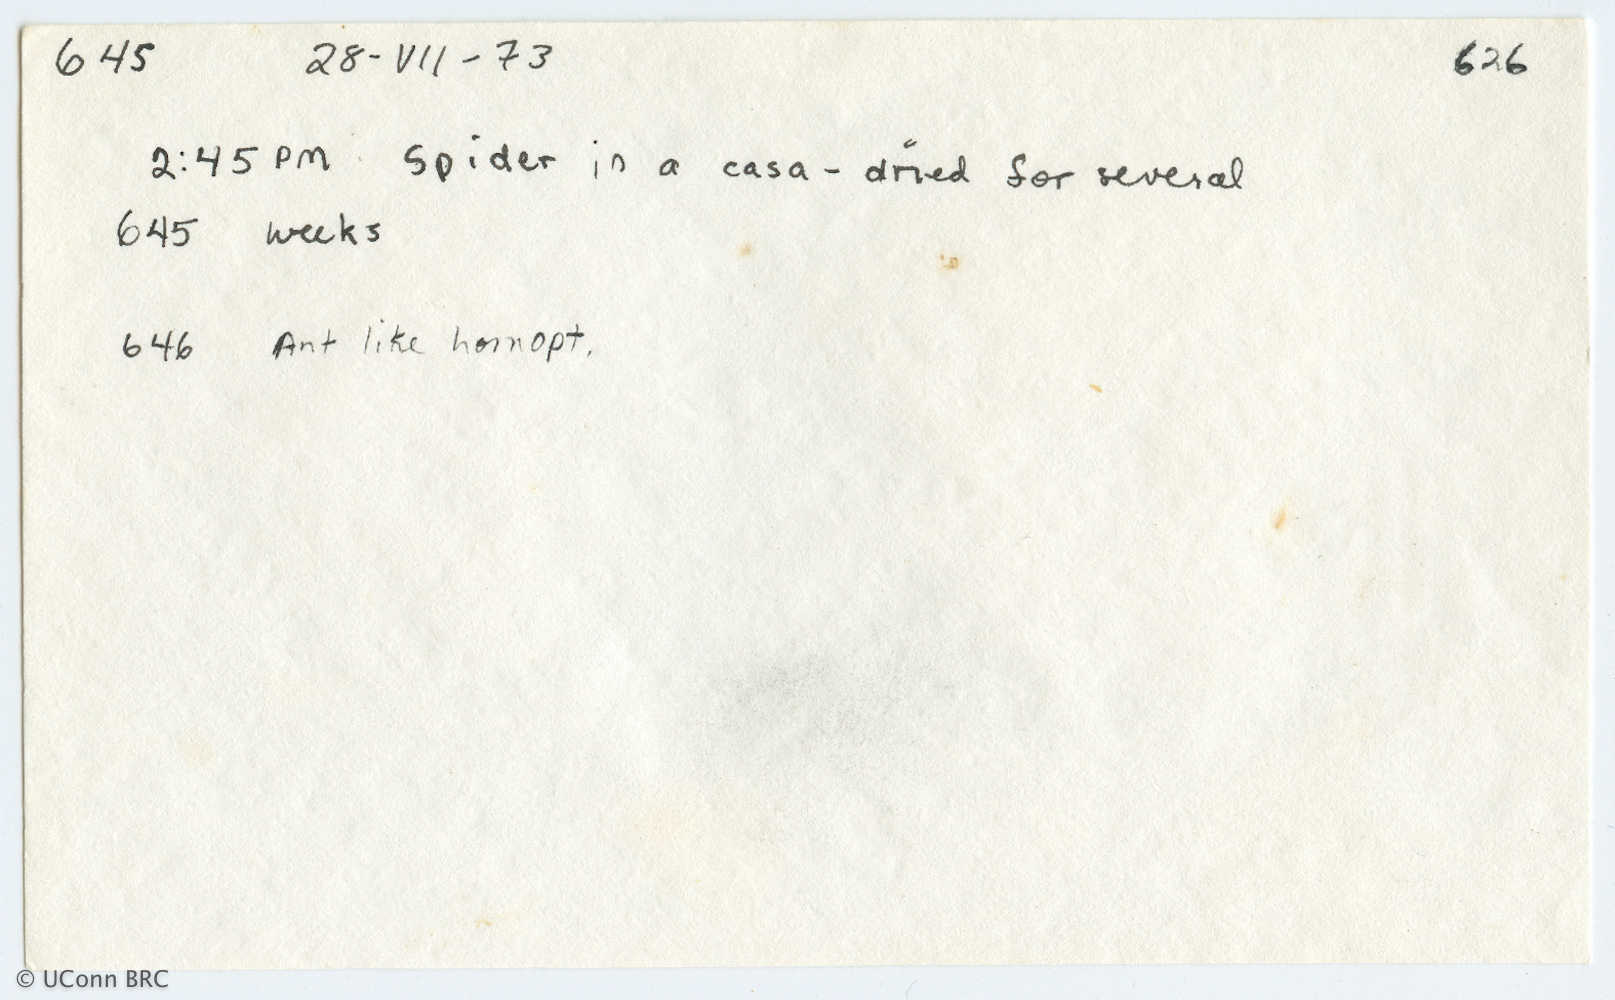 645 28-VII-73 626
2:45 PM. Spider in a casa - dried for several
645 weeks
646 Ant like homopt.
© UConn BRC